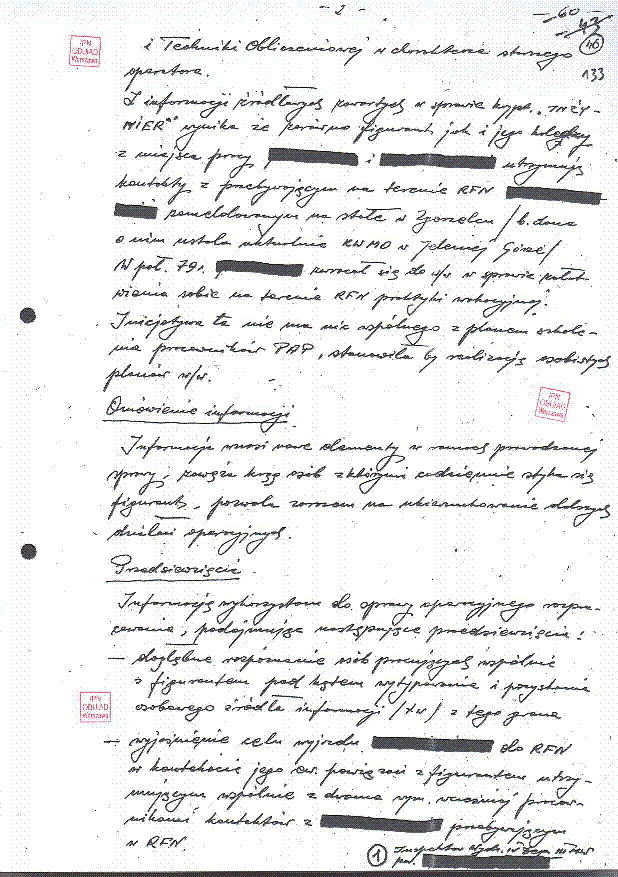 - 2 -
60
43
46
133
IPN
OBUiAD
Warszawa
i Techniki Obliczeniowej w charakterze starszego
operatora.
Z informacji źródłowych zawartych w sprawie krypt. "INŻY-
NIER" wynika że zarówno figurant jak i jego koledzy
z miejsca pracy i utrzymują
kontakty z przebywającym na terenie RFN
zameldowanym na stałe w Zgorzelcu /b. dane
o nim ustala aktualnie KWMO w Jeleniej Górze/
W poł. 79r. zwracał się do w/w w sprawie załat-
wienia sobie na terenie RFN praktyki wakacyjnej.
Inicjatywa ta nie ma nic wspólnego z planem szkole-
nia pracowników PAP, stanowiła by realizację osobistych
planów w/w.
Omówienie informacji
IPN
OBUiAD
Warszawa
Informacja wnosi nowe elementy w ramach prowadzonej
sprawy, zawęża krąg osób z którymi codziennie styka się
figurant, pozwala zarazem na ukierunkowanie dalszych
działań operacyjnych.
Przedsięwzięcia
Informację wykorzystano do sprawy operacyjnego rozpra-
cowania, podejmując następujące przedsięwzięcia:
- dogłębne rozpoznanie osób pracujących wspólnie
z figurantem pod kątem wytypowania i pozyskania
osobowego źródła informacji /tw/ z tego grona
IPN
OBUiAD
Warszawa
- wyjaśnienie celu wyjazdu do RFN
w kontekście jego ew. powiązań z figurantem utrzy-
mującym wspólnie z dwoma wym. wcześniej pracow-
nikami kontaktów z przebywającym
w RFN.
1 Inspektor Wydz. IV Dep. III MSW